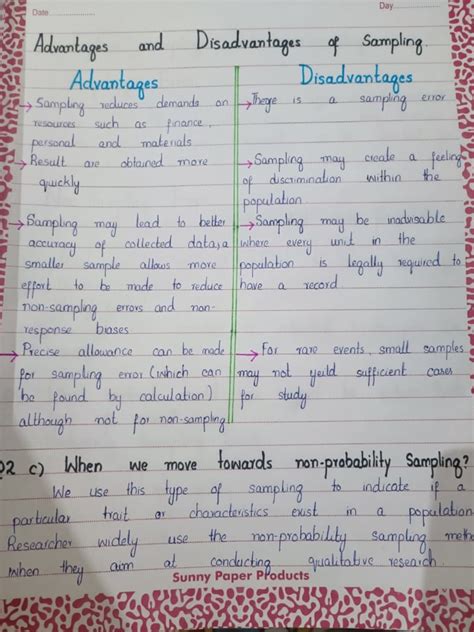 Date
Day
Advantages and Disadvantages of Sampling.
Advantages
→ Sampling reduces demands on
resources such as finance,
personal and materials
→ Result are obtained more
quickly
→ Sampling may lead to better
accuracy of collected data, a
smaller sample allows more
effort to be made to reduce
non-sampling errors and non-
response biases
→ Precise allowance can be made
for sampling error (which can
be found by calculation)
although not for non-sampling
Disadvantages
→ There is a sampling error
→ Sampling may create a feeling
of discrimination within the
population
→ Sampling may be inadvisable
where every unit in the
population is legally required to
have a record
→ For rare events, small samples
may not yeild sufficient cases
for study
Q2 c) When we move towards non-probability Sampling?
We use this type of sampling to indicate if a
particular trait or characteristics exist in a population.
Researcher widely use the non-probability sampling
when they aim at conducting qualitative research.
Sunny Paper Products